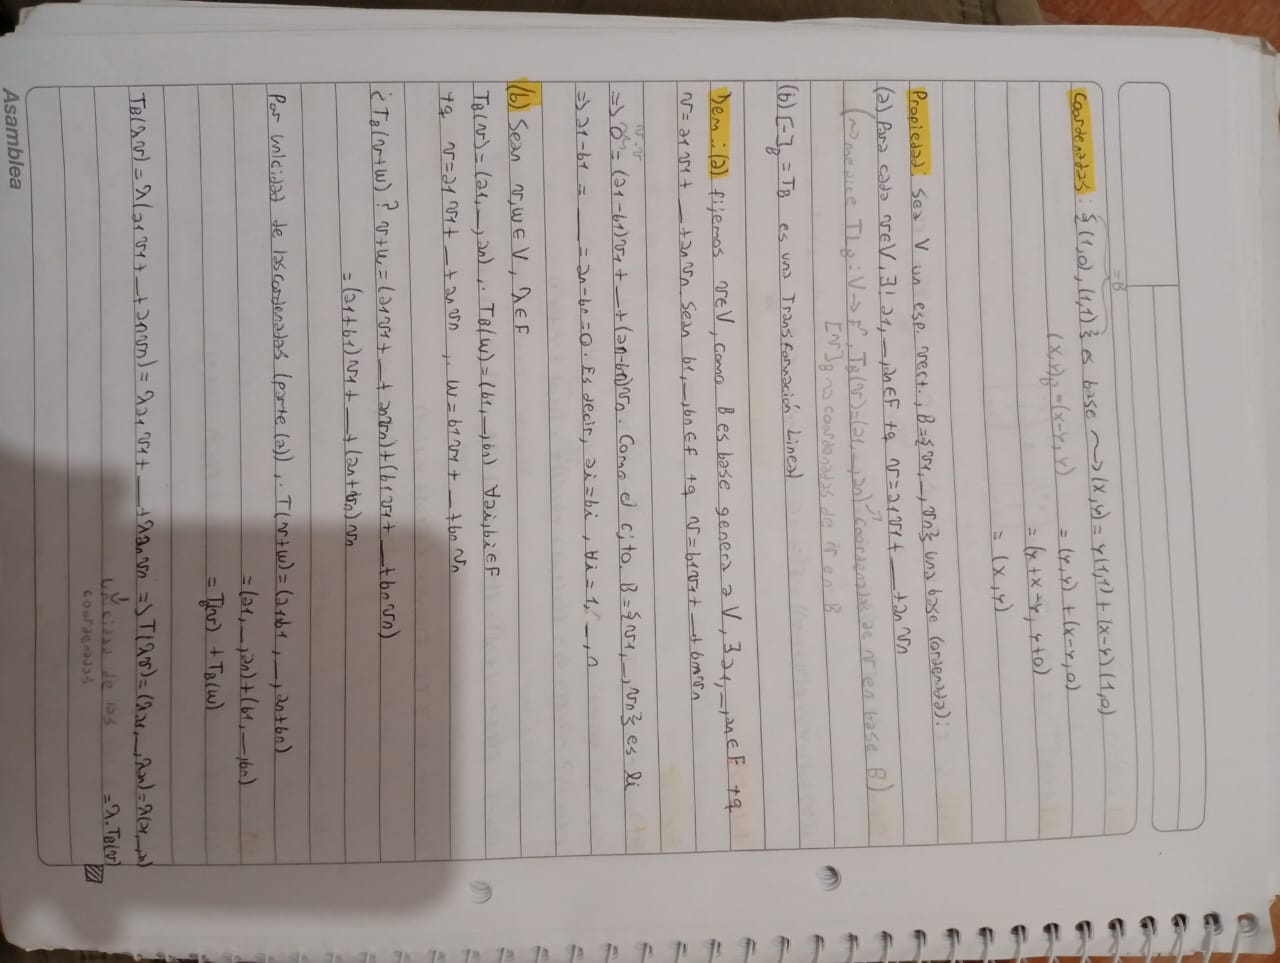 =B
Coordenadas: {(1,0),(1,1)} es base ~> (x,y) = y(1,1) + (x-y)(1,0)
(x,y)_B = (x-y, y) = (y,y) + (x-y,0)
= (y+x-y, y+0)
= (x,y)
Propiedad: Sea V un esp. vect., B={v1,_,vn} una base (ordenada):
(a) Para cada v∈V, ∃! a1,_,an∈F tq v=a1v1+_+anvn
T_B: V→Fⁿ, T_B(v)=(a1,_,an) coordenadas de v en base B)
[v]_B ~> coordenadas de v en B
(b) [-]_B = T_B es una Transformación Lineal
Dem.: (a) fijemos v∈V, como B es base genera a V, ∃ a1,_,an∈F tq
v=a1v1+_+anvn Sean b1,_,bn∈F tq v=b1v1+_+bnvn
v-v
=> 0 = (a1-b1)v1+_+(an-bn)vn. Como el cjto B={v1,_,vn} es li
=> a1-b1 = _ = an-bn=0. Es decir, ai=bi, ∀i=1,_,n
(b) Sean v,w∈V, λ∈F
T_B(v)=(a1,_,an) ,. T_B(w)=(b1,_,bn) ∀ai,bi∈F
tq v=a1v1+_+anvn , w=b1v1+_+bnvn
¿T_B(v+w)? v+w=(a1v1+_+anvn)+(b1v1+_+bnvn)
=(a1+b1)v1+_+(an+bn)vn
Por unicidad de las cordenadas (parte (a)),. T(v+w)=(a1+b1,_,an+bn)
=(a1,_,an)+(b1,_,bn)
= T_B(v) + T_B(w)
T_B(λv) = λ(a1v1+_+anvn) = λa1v1+_+λanvn => T(λv)=(λa1,_,λan)=λ(a1,_,a)
unicidad de las = λ.T_B(v)
coordenadas
Asamblea